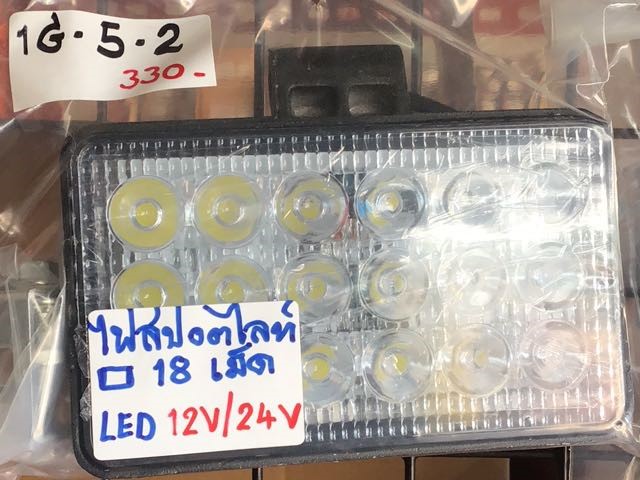 1G.5.2
330.-
ไฟสปอตไลท์
□ 18 เม็ด
LED 12V/24V